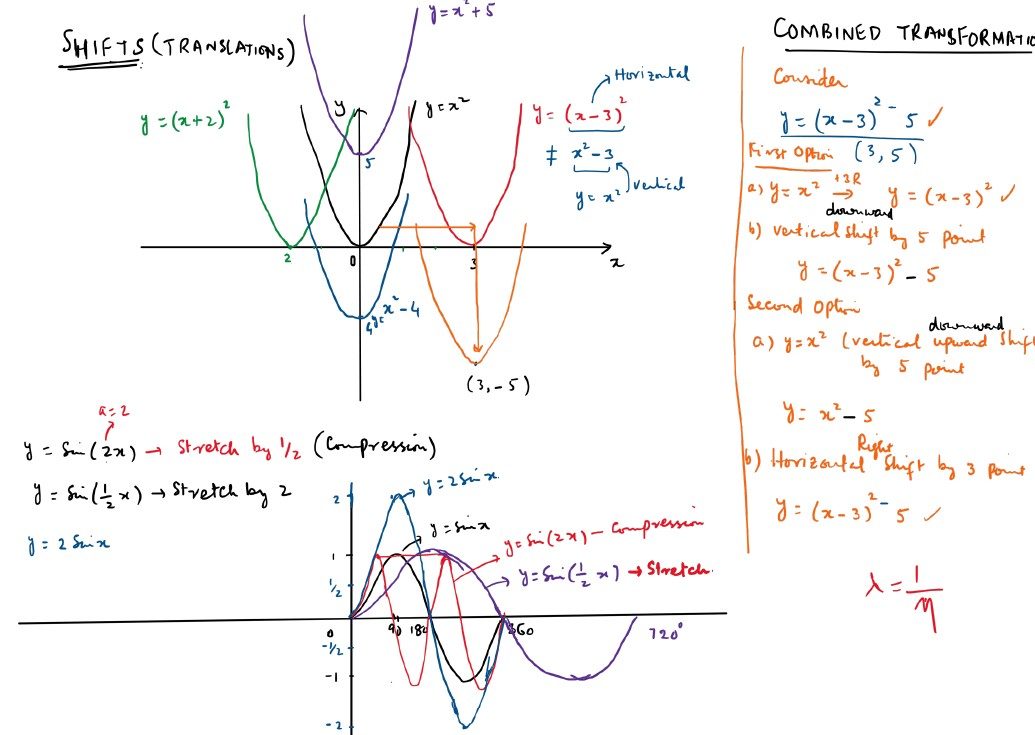 SHIFTS (TRANSLATIONS)
y = x² + 5
y = (x+2)²
y
y = x²
Horizontal
y = (x-3)²
≠ x² - 3
y = x²
vertical
5
2
0
3
x
4
y = x² - 4
(3, -5)
a = 2
y = Sin(2x) → Stretch by 1/2 (Compression)
y = Sin(½ x) → Stretch by 2
y = 2 Sin x
y = 2 Sin x
y = Sin x
y = Sin(2x) - Compression
y = Sin(½ x) → Stretch
2
1
½
0
-½
-1
-2
90
180
360
720°
COMBINED TRANSFORMATIO
Consider
y = (x-3)² - 5 ✓
First Option (3, 5)
a) y = x² +3R → y = (x-3)² ✓
downward
b) vertical shift by 5 point
y = (x-3)² - 5
Second Option
downward
a) y = x² (vertical upward Shift
by 5 point
y = x² - 5
Right
b) Horizontal Shift by 3 point
y = (x-3)² - 5 ✓
λ = 1/η